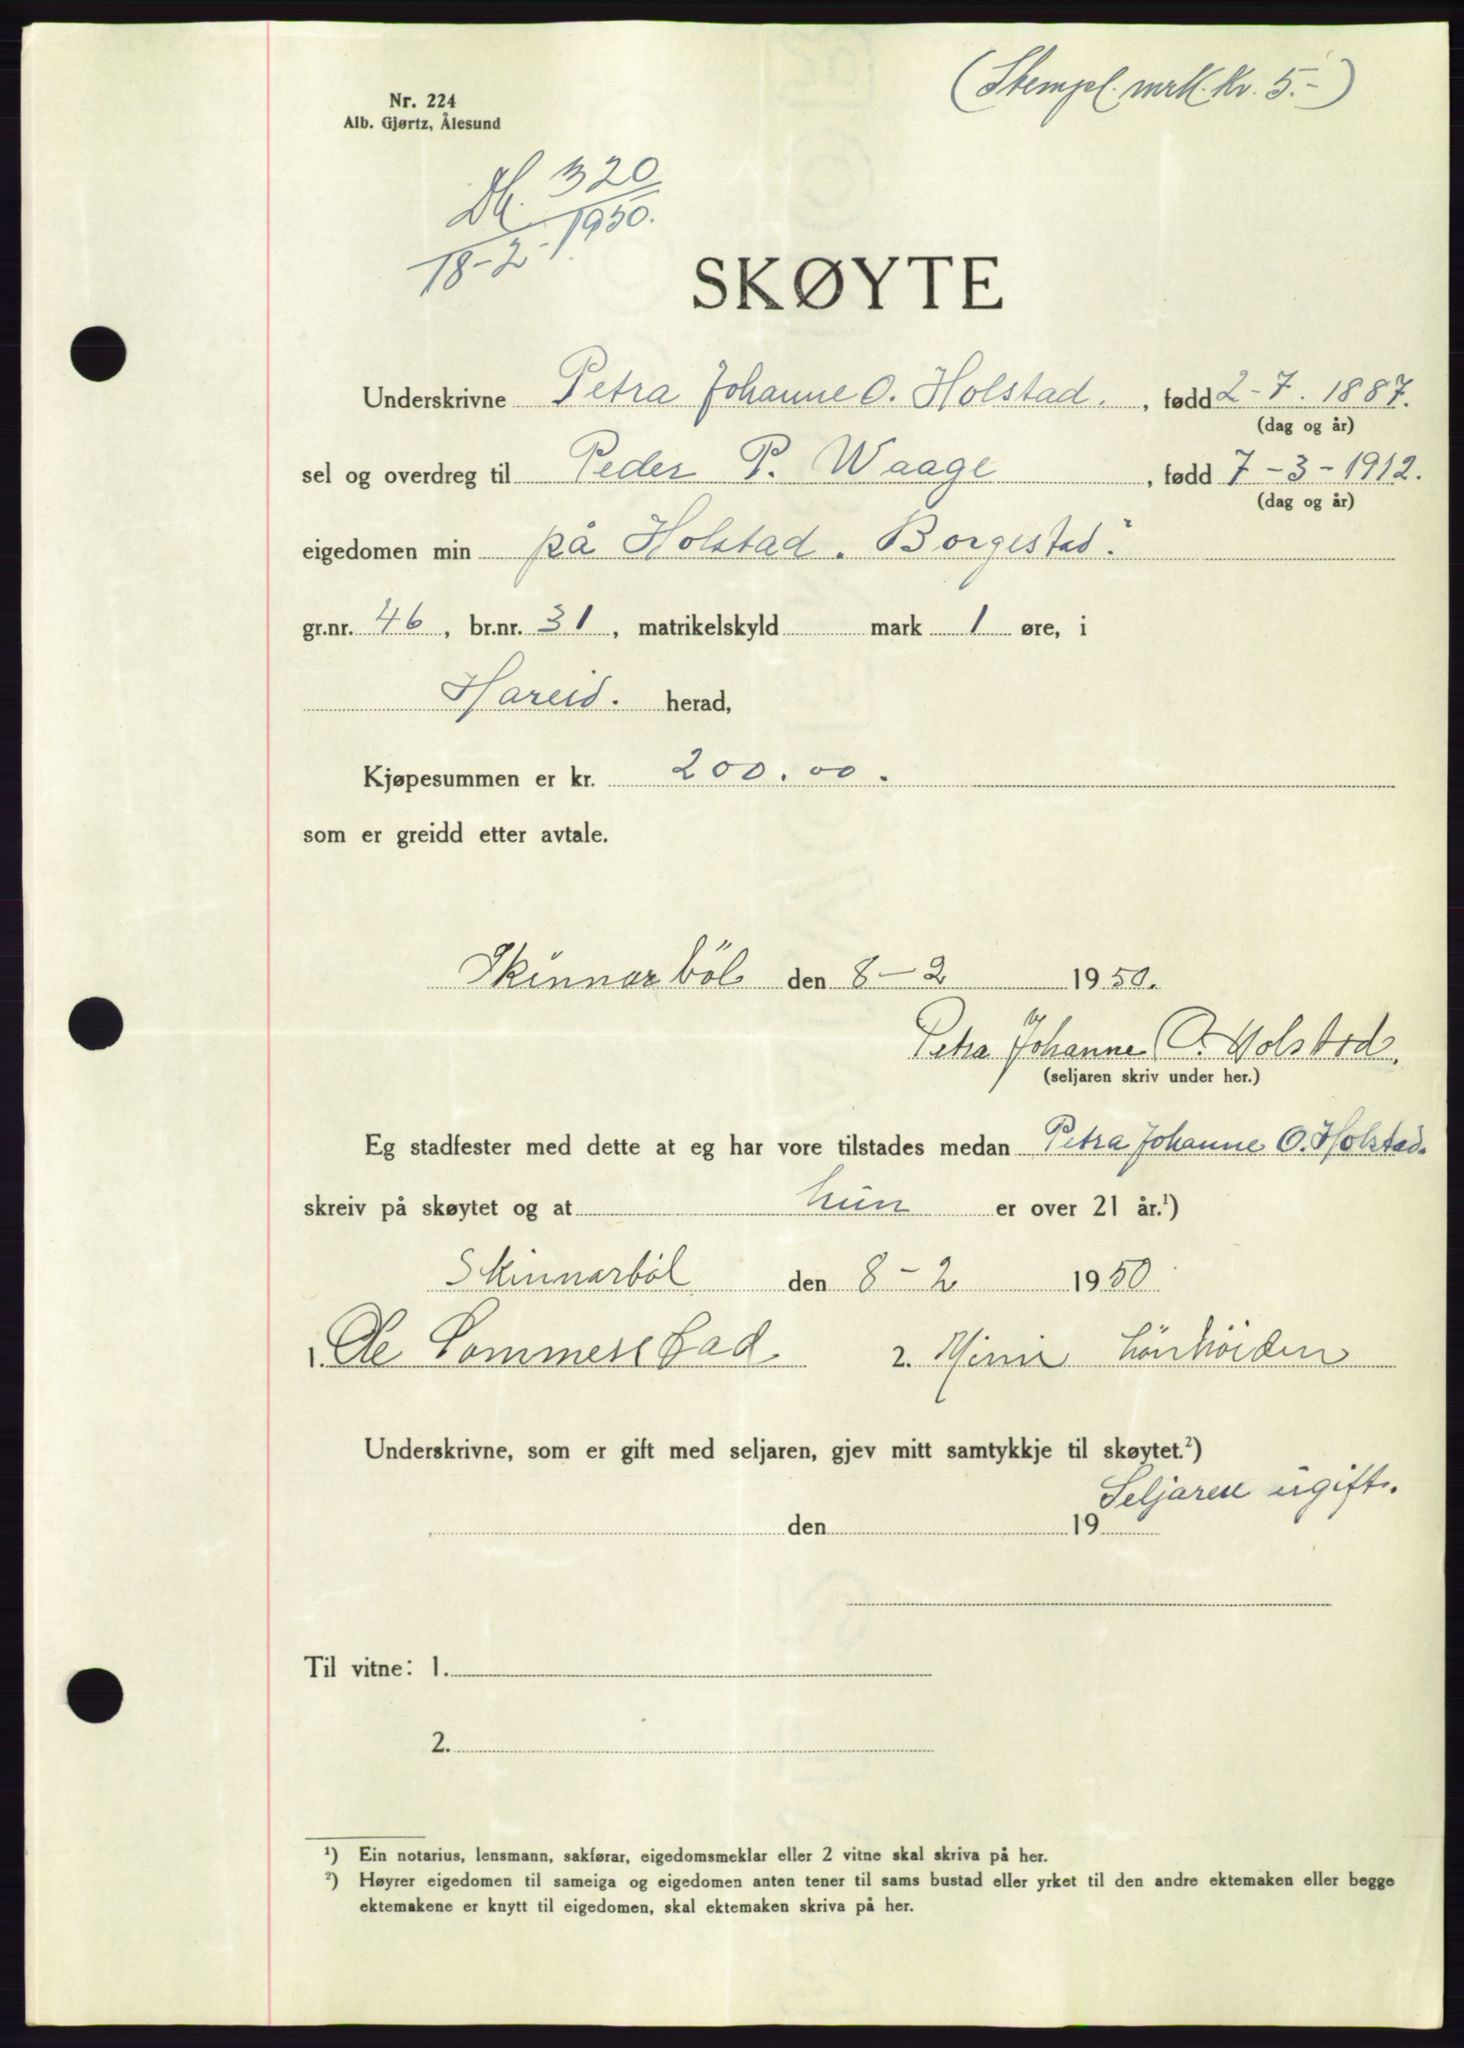 (Stempel.mrk. kr. 5.-)
Nr. 224
Alb. Gjørtz, Ålesund
Db. 320
18-2-1950.
SKØYTE
Underskrivne Petra Johanne O. Holstad. , fødd 2-7. 1887.
(dag og år)
sel og overdreg til Peder P. Waage , fødd 7-3-1912.
(dag og år)
eigedomen min på Holstad. Borgestad".
gr.nr. 46, br.nr. 31, matrikelskyld mark 1 øre, i
Hareid. herad,
Kjøpesummen er kr. 200.00.
som er greidd etter avtale.
Skinnarböl den 8-2 1950.
Petra Johanne O. Holstad.
(seljaren skriv under her.)
Eg stadfester med dette at eg har vore tilstades medan Petra Johanne O. Holstad.
skreiv på skøytet og at hun er over 21 år.¹)
Skinnarböl den 8-2 1950
1. Ole Sommerstad 2.
Underskrivne, som er gift med seljaren, gjev mitt samtykkje til skøytet.²)
Seljaren ugift.
den 19
Til vitne: 1.
2.
¹) Ein notarius, lensmann, sakførar, eigedomsmeklar eller 2 vitne skal skriva på her.
²) Høyrer eigedomen til sameiga og eigedomen anten tener til sams bustad eller yrket til den andre ektemaken eller begge
ektemakene er knytt til eigedomen, skal ektemaken skriva på her.